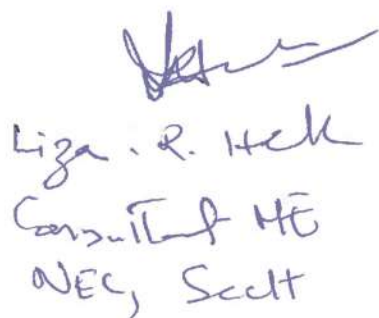 Liza. R. Hek
Consultant ME
NEC, Scelt